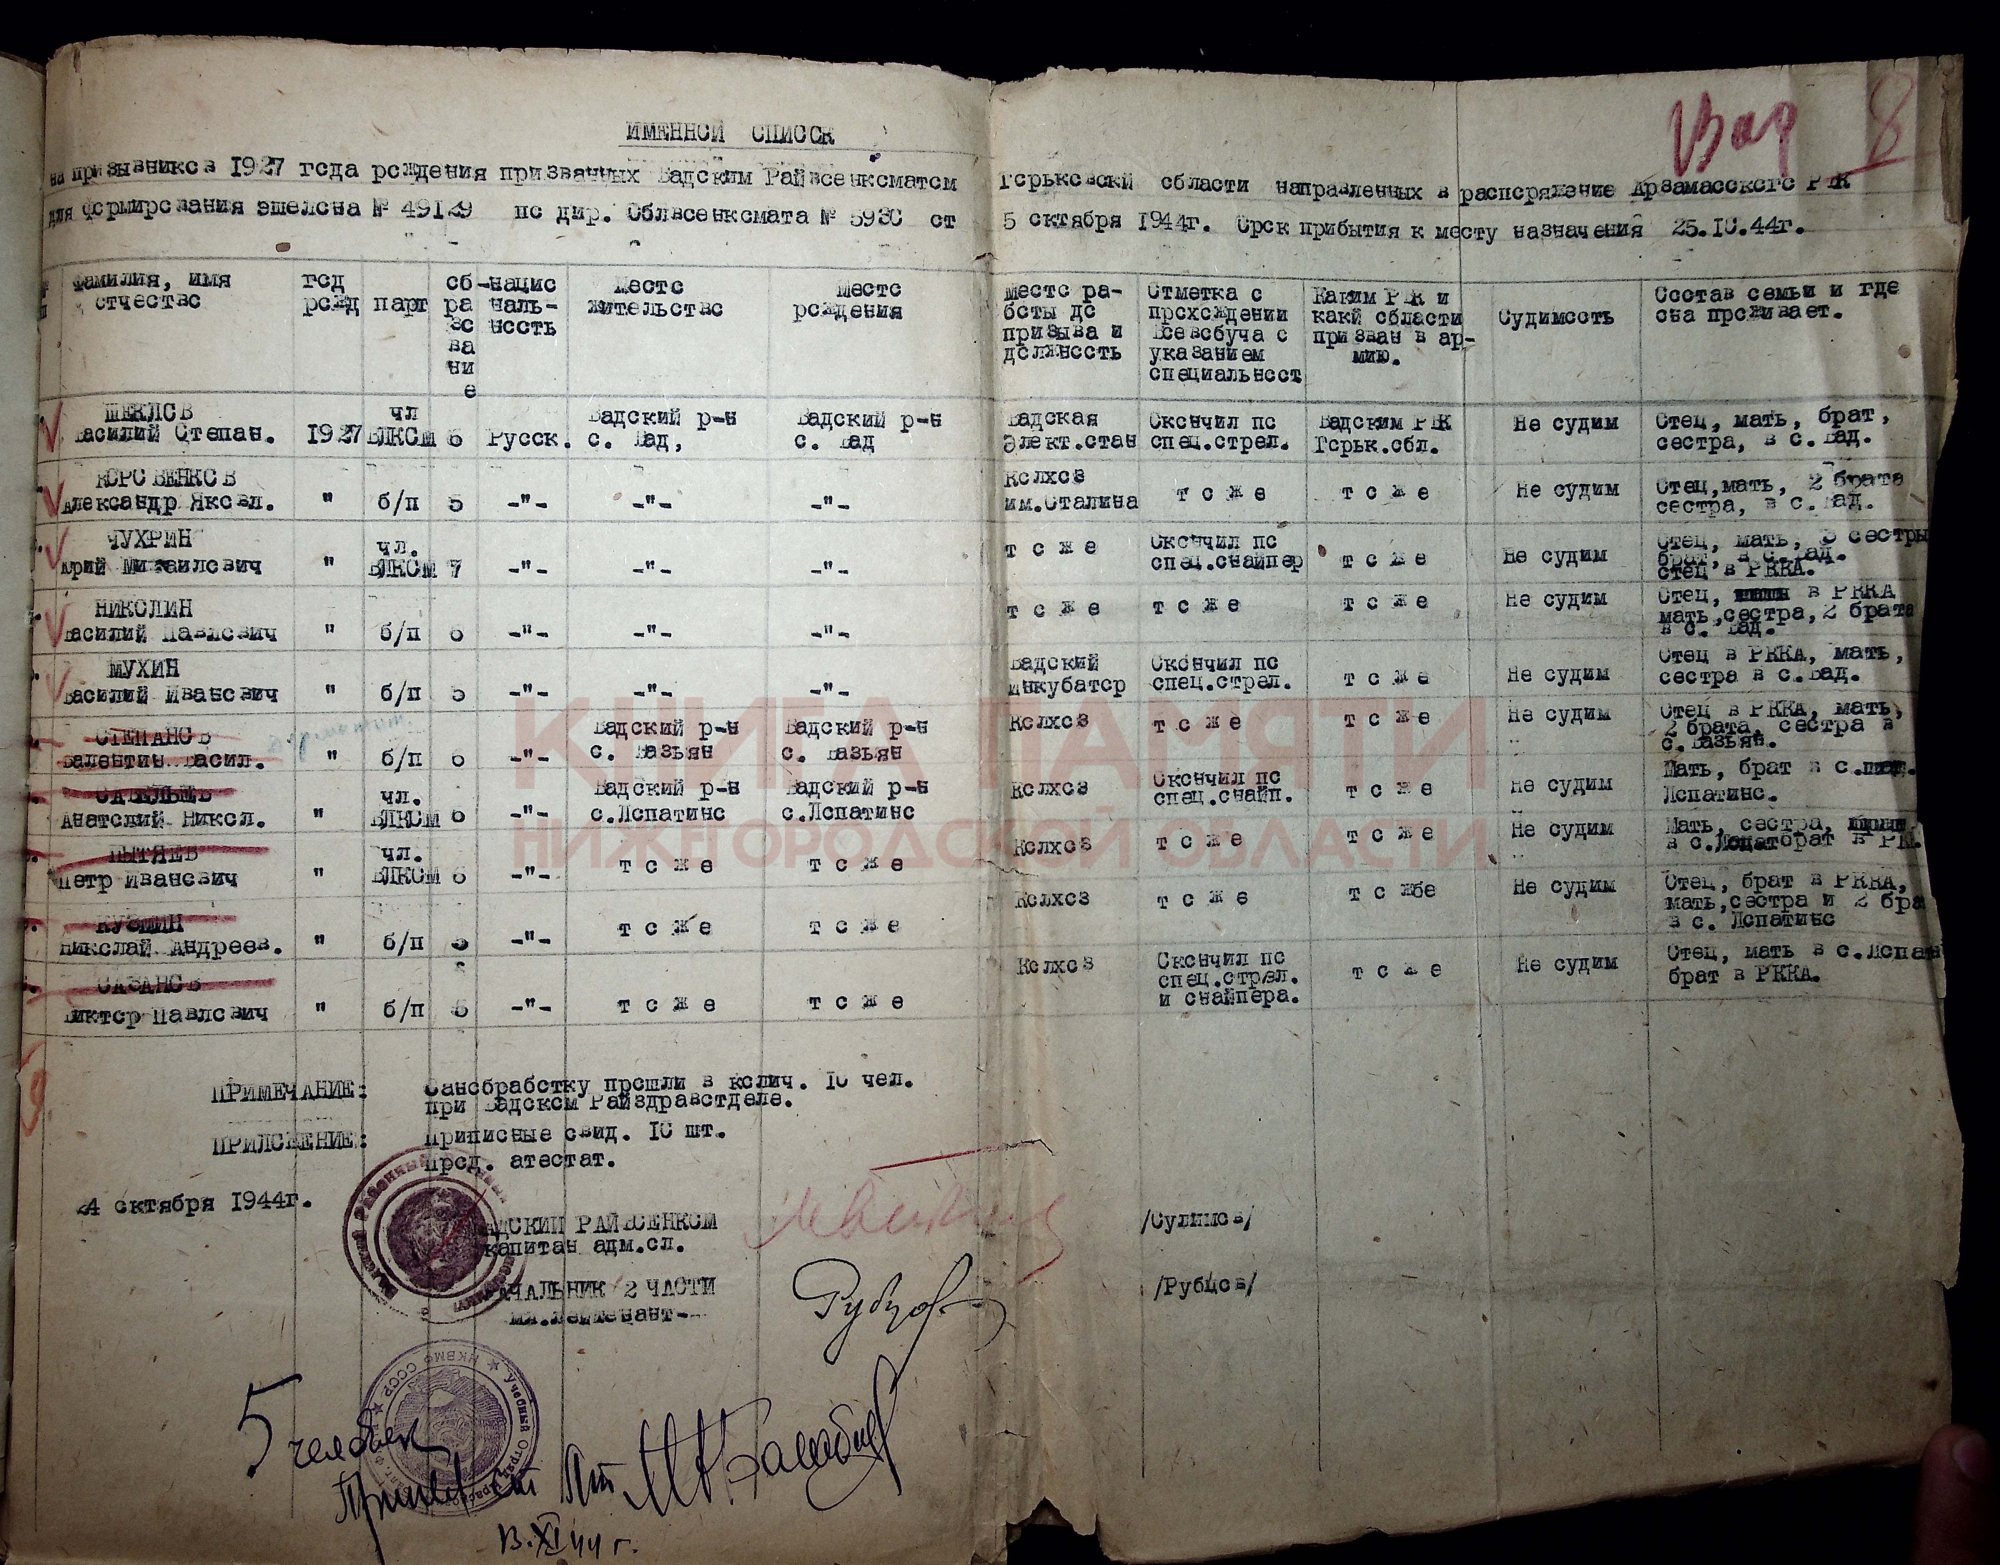 Вад 8
ИМЕННОЙ СПИСОК
на призывников 1927 года рождения призванных Вадским Райвоенкоматом Горьковской области направленных в распоряжение Арзамасского РВК
для формирования эшелона № 49129 по дир. Облвоенкомата № 5930 от 5 октября 1944г. Срок прибытия к месту назначения 25.10.44г.
Фамилия, имя отчество
год рожд
парт
образование
националь-ность
Место жительство
Место рождения
Место ра-боты до призыва и должность
Отметка о прохождении Всевобуча с указанием специальност
Каким РВК и какй области призван в ар-мию.
Судимость
Состав семьи и где она проживает.
ШЕКЛОВ Василий Степан. 1927 чл ВЛКСМ 6 Русск. Вадский р-н с. Вад, Вадский р-н с. Вад Вадская Элект.стан Окончил по спец.стрел. Вадским РВК Горьк.обл. Не судим Отец, мать, брат, сестра, в с.Вад.
КОРОВЕНКОВ Александр Яковл. " б/п 5 -"- -"- -"- Колхоз им.Сталина т о ж е т о ж е Не судим Отец,мать, 2 брата сестра, в с.Вад.
ЧУХРИН Юрий Михаилович " чл. ВЛКСМ 7 -"- -"- -"- т о ж е Окончил по спец.снайпер т о ж е Не судим Отец, мать, 3 сестры брат, в с.Вад. отец в РККА.
НИКОЛИН Василий Павлович " б/п 6 -"- -"- -"- т о ж е т о ж е т о ж е Не судим Отец, в РККА мать,сестра,2 брата в с. Вад.
МУХИН Василий Иванович " б/п 5 -"- -"- -"- Вадский Инкубатор Окончил по спец.стрел. т о ж е Не судим Отец в РККА, мать, сестра в с.Вад.
СТЕПАНОВ Валентин Васил. " б/п 6 -"- Вадский р-н с. Вазьян Вадский р-н с. Вазьян Колхоз т о ж е т о ж е Не судим Отец в РККА, мать, 2 брата, сестра в с.Вазьян.
САВЕЛЬЕВ Анатолий Никол. " чл. ВЛКСМ 6 -"- Вадский р-н с.Лопатино Вадский р-н с.Лопатино Колхоз Окончил по спец.снайп. т о ж е Не судим Мать, брат в с. Лопатино.
ПЫТЯЕВ Петр Иванович " чл. ВЛКСМ 6 -"- т о ж е т о ж е Колхоз т о ж е т о ж е Не судим Мать, сестра, в с.Лопат брат в РК
КУЗМИН Николай Андреев. " б/п 5 -"- т о ж е т о ж е Колхоз т о ж е т о жбе Не судим Отец, брат в РККА, мать,сестра и 2 бра в с. Лопатино
САЗАНОВ Виктор Павлович " б/п 5 -"- т о ж е т о ж е Колхоз Окончил по спец.стрел. и снайпера. т о ж е Не судим Отец, мать в с.Лопатин брат в РККА.
ПРИМЕЧАНИЕ: Санобработку прошли в колич. 10 чел.
при Вадском Райздравотделе.
ПРИЛОЖЕНИЕ: Приписные свид. 10 шт.
прод. атестат.
24 октября 1944г.
ВАДСКИЙ РАЙВОЕНКОМ
капитан адм.сл. /Сулимов/
НАЧАЛЬНИК 2 ЧАСТИ
мл.лейтенант- Рубцов /Рубцов/
НКВМФ СССР
Учебный Отряд
5 человек
Принял
13.XI 44 г.
КНИГА ПАМЯТИ
НИЖЕГОРОДСКОЙ ОБЛАСТИ